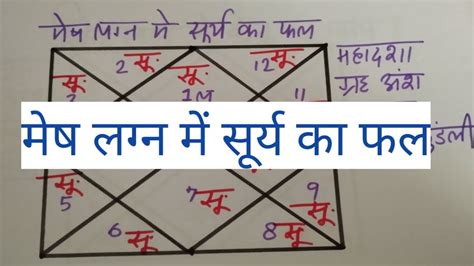 मेष लग्न में सूर्य का फल
2 सू. सू. 12 सू.
महादशा
सू. 1ल
ग्रह अंश
मेष लग्न में सूर्य का फल
कुंडली
सू. 7 सू. 9
5 सू.
6 सू. 8 सू.